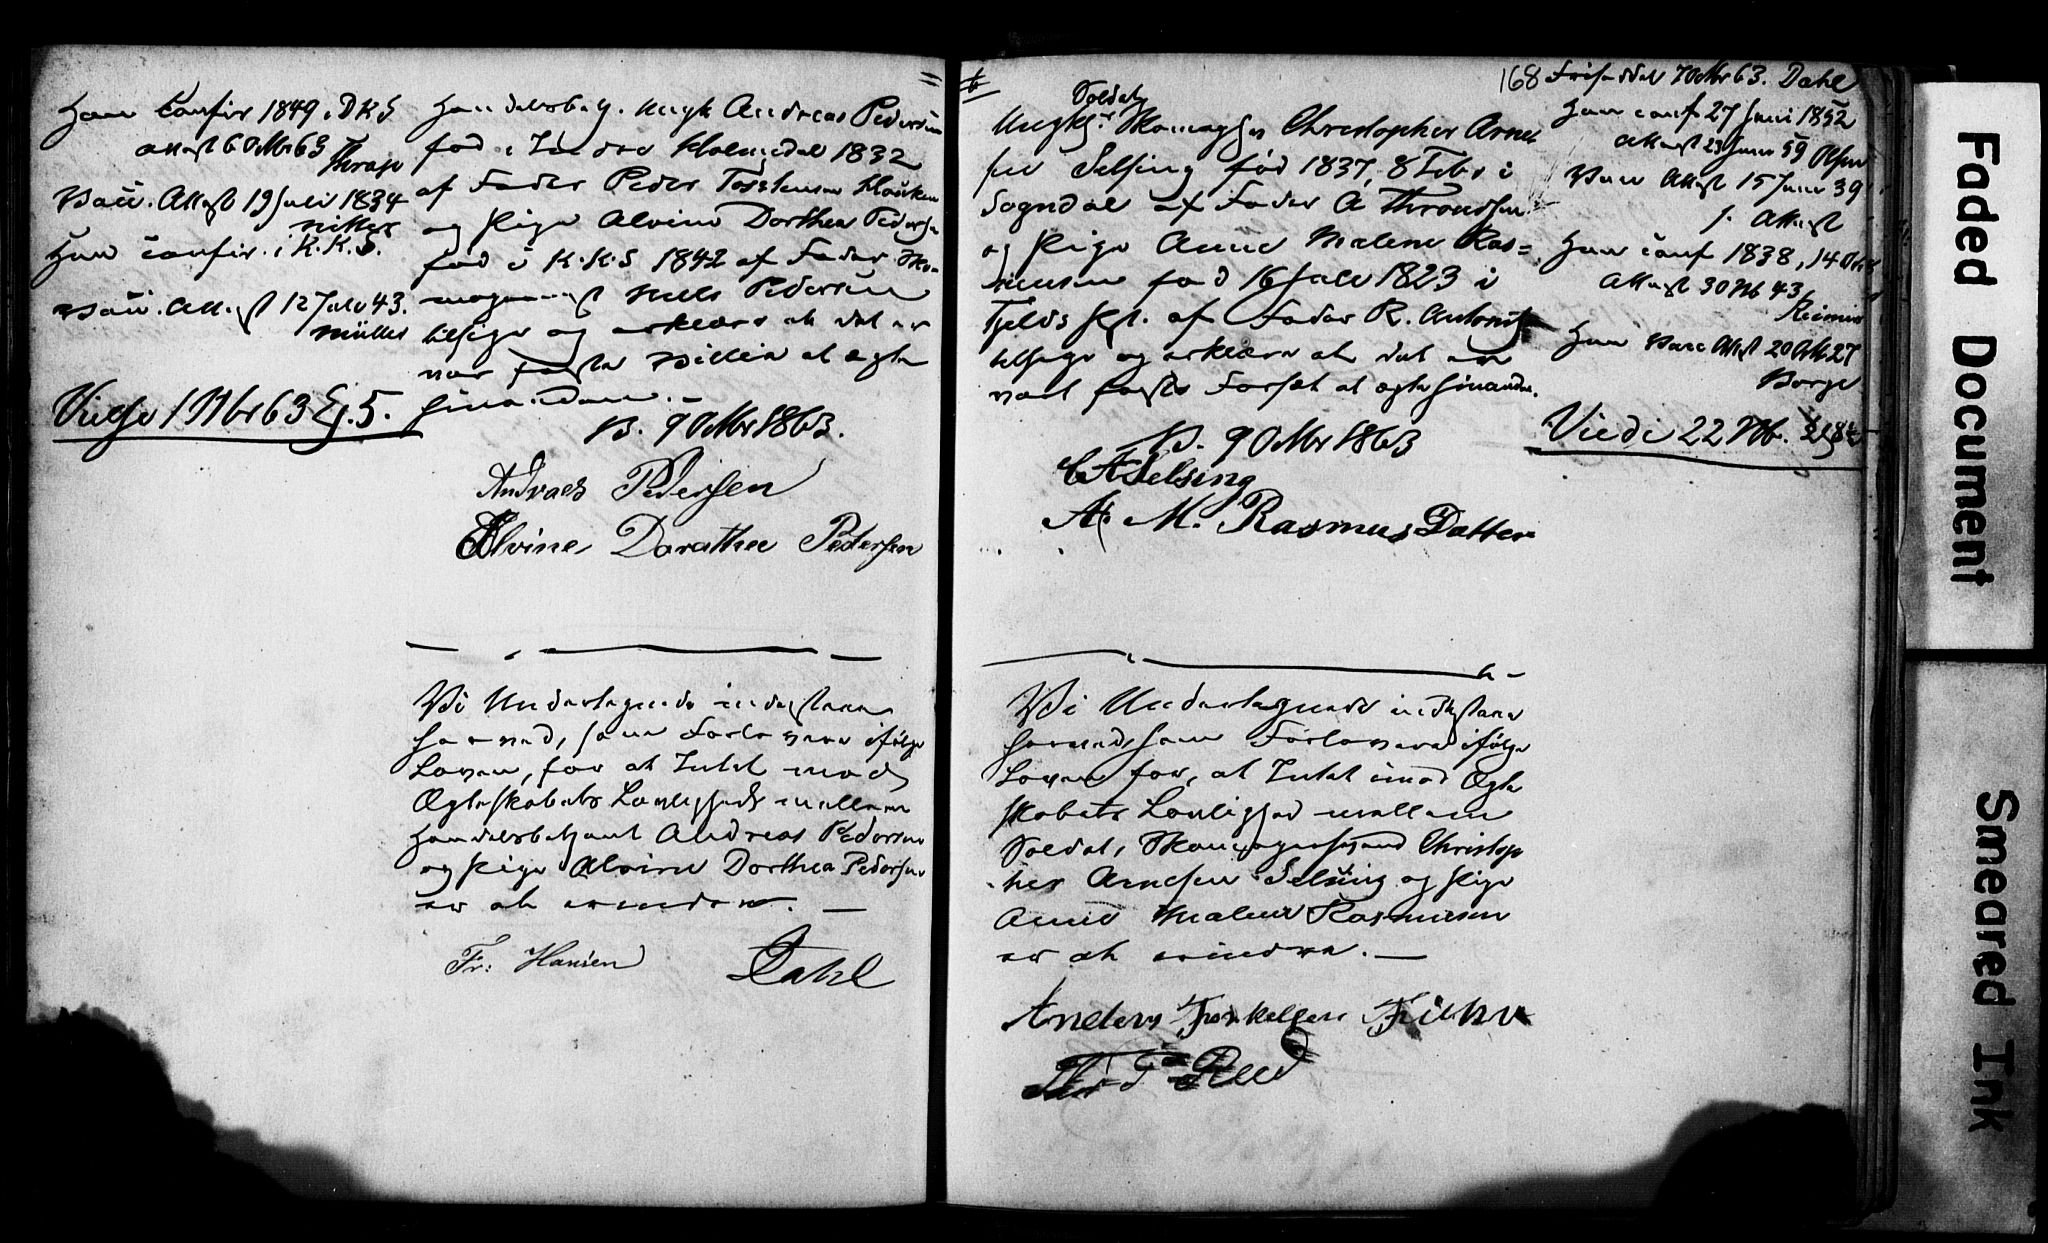 Han Confir 1849 i DKS
Attest 6 Octbr 63
Thrap
Vacc. Attest 19 Juli 1834
Hun Confir. i K.K.S.
Vacc. Attest 12 Juli 43.
Müller
Viede 1 Nbr 63 Ej. 5.
Handelsbetj. Ungk Andreas Pedersen
fød i Indre Holmedal 1832
af Fader Peder Torstensen
og Pige Alvine Dorthea Pedersen
fød i K.K.S 1842 af Fader Sko-
magermest Niels Pedersen
tilsige og erklære at det er
vor faste Villie at ægte
hinanden.
B. 9 Octbr 1863.
Andraes Pedersen
Alvine Dorathea Pedersen
Vi Undertegnede indestaae
herved, som Forlovere ifølge
Loven, for at Intet imod
Ægteskabets Lovlighed mellem
Handelsbetjent Andreas Pedersen
og Pige Alvine Dorthea Pedersen
er at erindre.
Fr: Hansen Dahl
168
Soldat
Ungk: Skomagersv Christopher Arne
sen Selsing fød 1837, 8 Febr i
Sogndal af Fader A Throndsen
og Pige Anne Malene Ras=
musen fød 16 Juli 1823 i
Fjelds Pgl. af Fader R. Antonius
tilsige og erklære at det er
vort faste Forsæt at ægte hinanden.
B. 9 Octbr 1863
CASelsing
A. M. Rasmus Datter
Vi Undertegnede indestaae
herved som Forlovere ifølge
Loven for, at Intet imod Ægte
skabets Lovlighed mellem
Soldat, Skomagersvend Christop
her Arnesen Selsing og Pige
Anne Malene Rasmusen
er at erindre.
Anders
Dahl
Han conf 27 Juni 1852
Attest 23 Juni 59 Olsen
Vacc Attest 15 Juni 39
f. Attest
Hun conf 1838, 14 Octbr
Attest 30 Nb 43
Hun Vacc Attst 20 Octb 27
Viede 22 Nb.
Faded Document
Smeared Ink